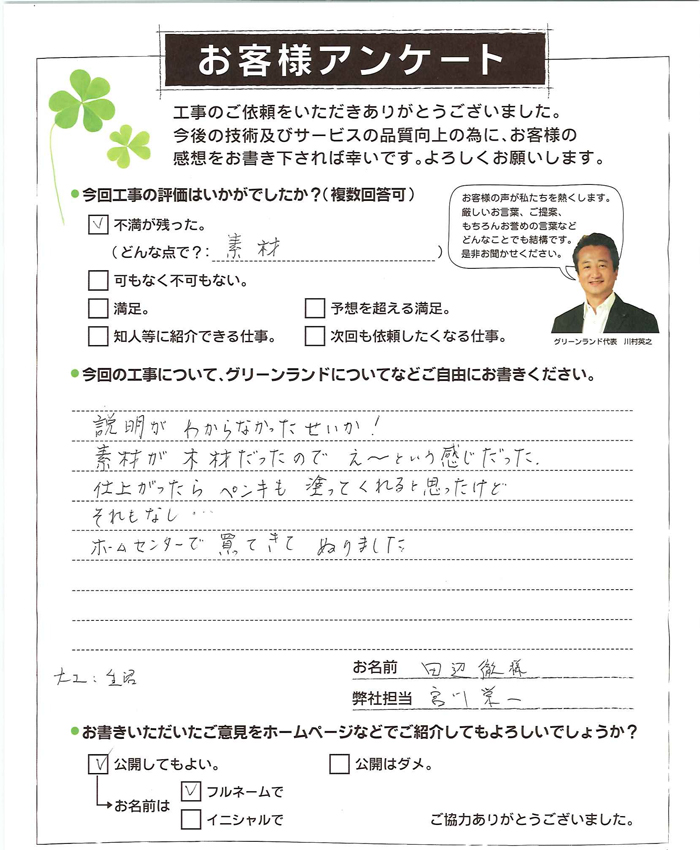 お客様アンケート
工事のご依頼をいただきありがとうございました。
今後の技術及びサービスの品質向上の為に、お客様の
感想をお書き下されば幸いです。よろしくお願いします。
●今回工事の評価はいかがでしたか？（複数回答可）
不満が残った。
（どんな点で？：素材）
可もなく不可もない。
満足。
予想を超える満足。
知人等に紹介できる仕事。
次回も依頼したくなる仕事。
お客様の声が私たちを熱くします。
厳しいお言葉、ご提案、
もちろんお誉めの言葉など
どんなことでも結構です。
是非お聞かせください。
グリーンランド代表 川村英之
●今回の工事について、グリーンランドについてなどご自由にお書きください。
説明が わからなかったせいか！
素材が 木材だったので え〜という感じだった.
仕上がったら ペンキも 塗ってくれると思ったけど
それもなし…
ホームセンターで 買ってきて ぬりました
お名前 田辺 徹 様
大工：
弊社担当 宮川 栄一
●お書きいただいたご意見をホームページなどでご紹介してもよろしいでしょうか？
公開してもよい。
公開はダメ。
お名前は
フルネームで
イニシャルで
ご協力ありがとうございました。